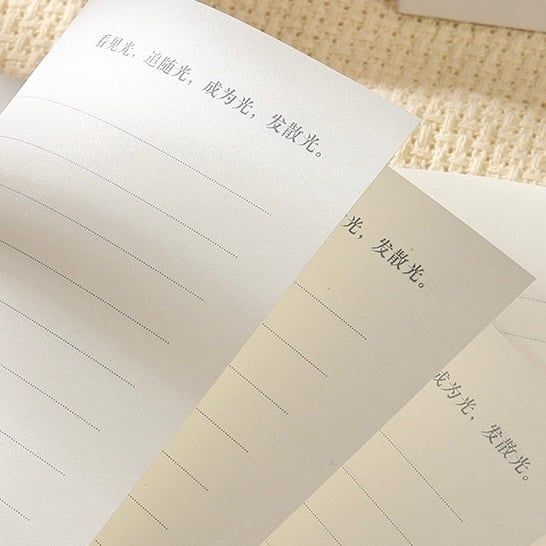 看见光，追随光，成为光，发散光。
光，发散光。
成为光，发散光。